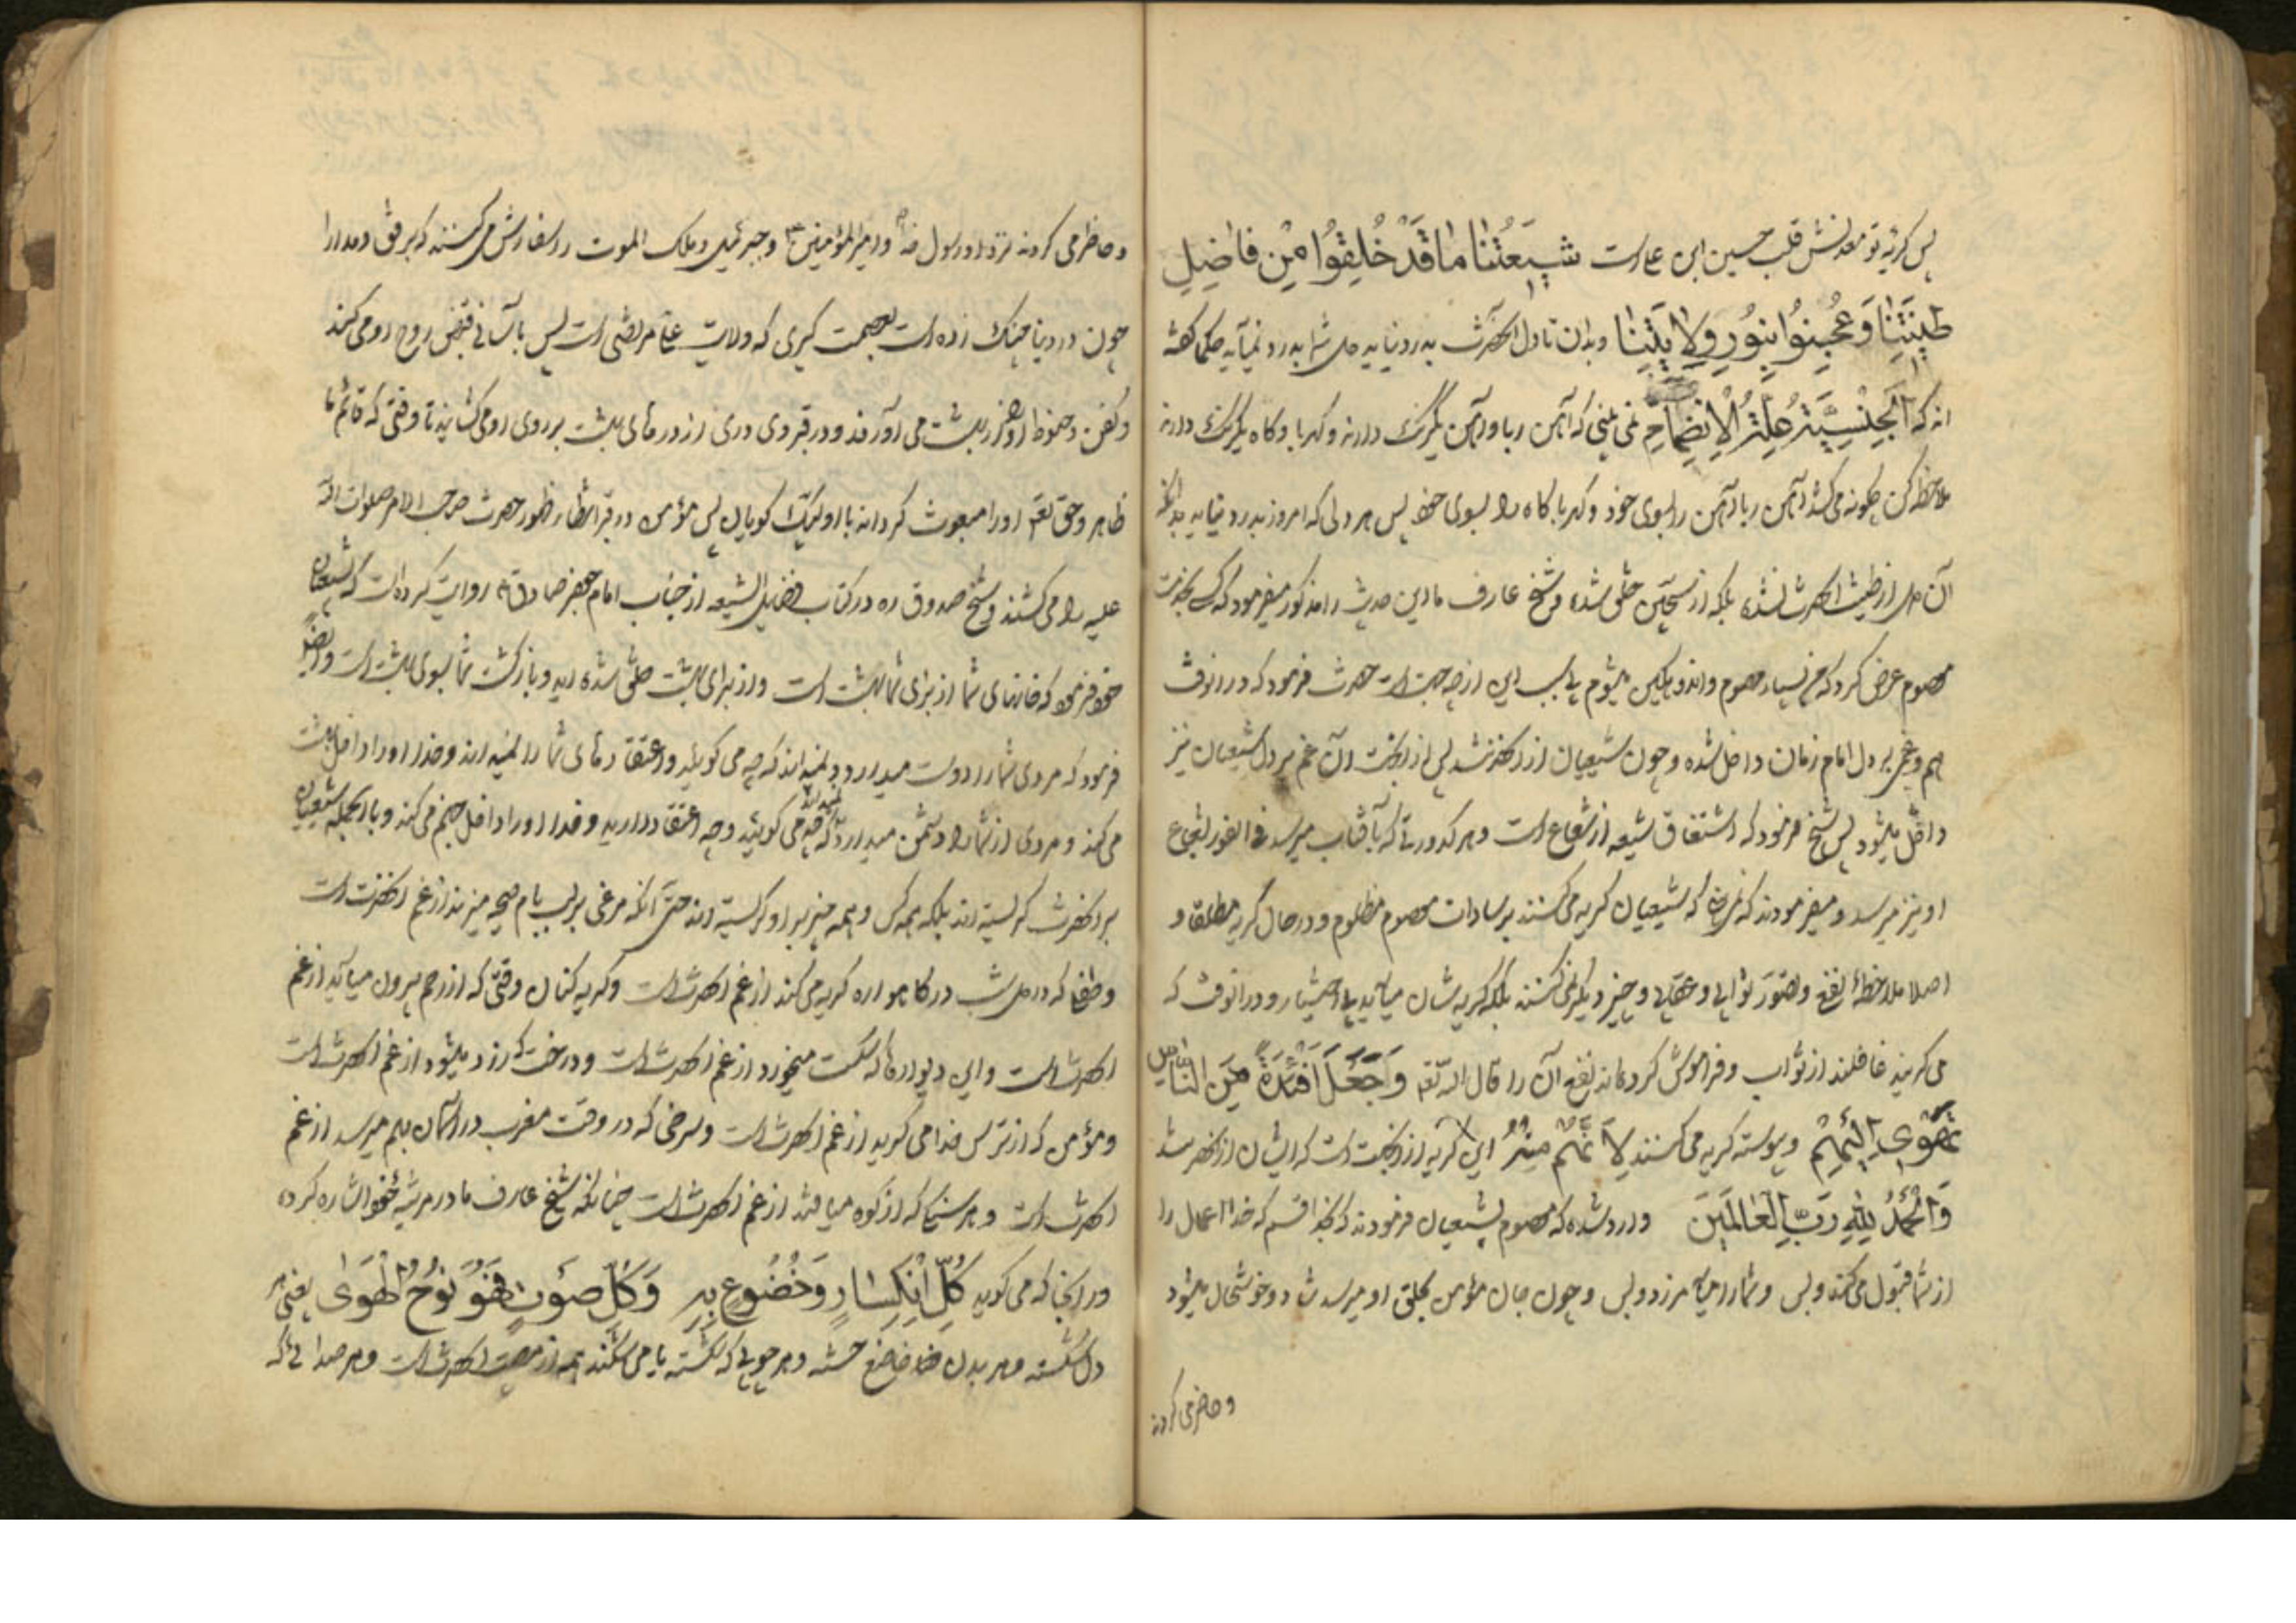 پس گریه تو معدنش قلب حسین ابن علی است شیعَتُنا ماقَدْ خُلِقُوا مِنْ فاضِلِ
طینَتِنا وَعُجِنُوا بِنُورِ وِلایَتِنا وبدان تا دل آنحضرت بدرد نیاید دل شما بدرد نمیآید حکما گفته
اند که اَلْجِنْسِیَّةُ عِلَّةُ الْاِنْضِمامِ نمی بینی که آهن ربا و آهن یکرنگ دارند و کهربا و کاه یکرنگ دارند
ملاحظه کن چگونه می کشد آهن ربا آهن را بسوی خود و کهربا کاه را بسوی خود پس هر دلی که امروز بدرد نیاید بدانکه
آن دل از طینت آنحضرت نشده بلکه از سجّین خلق شده و شیخ عارف ما این حدیث را مذکور میفرمود که کسی بخدمت
معصوم عرض کرد که من بسیار مهموم و اندوهگین میشوم بی سبب این از چه جهت است حضرت فرمود که در آنوقت
هم و غمی بر دل امام زمان داخل شده و چون شیعیان از آنحضرتند پس از آنجهت آن غم بر دل شیعیان نیز
داخل میشود پس شیخ فرمود که اشتقاق شیعه از شعاع است و هر کدورتی که بآفتاب میرسد فی الفور بشعاع
او نیز میرسد و میفرمودند که شیعیان گریه می کنند بر سادات معصوم مظلوم و در حال گریه مطلقا و
اصلا ملاحظهٔ نفع و تصوّر ثوابی و عقابی و چیز دیگر نمی کنند بلکه گریه شان میآید بی اختیار و در آنوقت که
می گریند غافلند از ثواب و فراموش کرده اند نفع آن را قال الله تعه وَاجْعَلْ اَفْئِدَةً مِنَ النّاسِ
تَهْوی اِلَیْهِمْ و پیوسته گریه می کنند لا این گریه از آنجهت است که ایشان از آنحضرتند
وَالْحَمْدُ لِلّهِ رَبِّ الْعالَمینَ وارد شده که معصوم بشیعیان فرمودند که بخدا قسم که خدا اعمال را
از شما قبول می کند و بس و شما را میآمرزد و بس و چون جان مؤمن بحلق او میرسد شاد و خوشحال میشود
و حاضر می کردند
و حاضر می کردند نزد او رسول خدا و امیرالمؤمنین و جبرئیل و ملک الموت را سفارش می کنند که برفق و مدارا
چون در دنیا چنگ زده است بعصمت کبری که ولایت علی مرتضی است پس باسانی قبض روح او می کند
و کفن و حنوط او را از بهشت می آورند و در قبر وی دری از درهای بهشت بر روی او می کشایند تا وقتی که قائم ما
ظاهر و حق تعه او را مبعوث گرداند با او لبیک گویان پس مؤمن در قبر انتظار ظهور حضرت صاحب الامر صلوات الله
علیه را می کشند و شیخ صدوق ره در کتاب فضایل الشیعه از جناب امام جعفر صادق روایت کرده است که شیعیان
خود فرمود که خانهای شما از برای شما بهشت است و از برای بهشت خلق شده اید و بازگشت شما بسوی بهشت است و ایضا
فرمود که مردی شما را دوست میدارد و نمیداند که چه می گوئید و اعتقادهای شما را نمیداند و خدا او را داخل بهشت
می کند و مردی از شما را دشمن میدارد که چه می گوئید و چه اعتقاد دارید و خدا او را داخل جهنم می کند و بالجمله شیعیان
بر آنحضرت گریسته اند بلکه همه کس و همه چیز بر او گریسته اند حتّی آنکه مرغی بر لب بام صیحه میزند از غم آنحضرت است
و طفلی که در دل شب در گاهواره گریه می کند از غم آنحضرت است و گریه کنان وقتی که از رحم بیرون میآید از غم
آنحضرت است و این دیوارها که شکست میخورد از غم آنحضرت است و درخت که زرد میشود از غم آنحضرت است
و مؤمن که از ترس خدا می گرید از غم آنحضرت است و سرخی که در وقت مغرب در آسمان بهم میرسد از غم
آنحضرت است و هر سنگی که از کوه میافتد از غم آنحضرت است چنانکه شیخ عارف ما در مرثیه خود اشاره کرده
در آنجا که می گوید کُلُّ انْکِسارٍ وَخُضُوعٍ بِهِ وَکُلُّ صَوْتٍ فَهُوَ نَوْحُ الْهَوی یعنی هر
دل شکسته و هر بدن خاضع خسته و هر چوبی که شکسته یا می شکند همه از مصیبت آنحضرت است و هر صدائی که